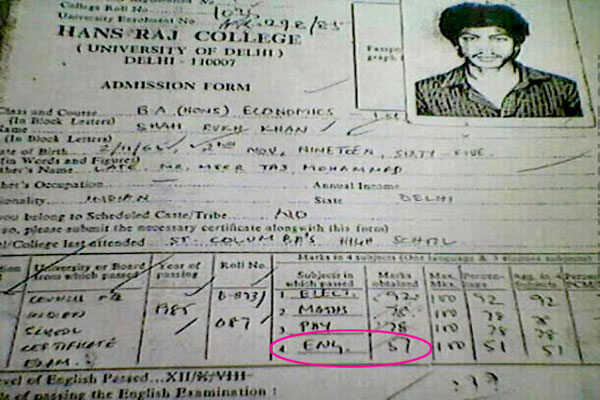 College Roll No.
University Enrolment No.
HANS RAJ COLLEGE
( UNIVERSITY OF DELHI )
DELHI - 110007
ADMISSION FORM
Class and Course B.A (HONS) ECONOMICS
(In Block Letters)
Name SHAH RUKH KHAN
(In Block Letters)
Date of Birth 2/11/65, 2nd NOV, NINETEEN SIXTY FIVE.
(in Words and Figures)
Father's Name LATE MR. MEER TAJ MOHAMMED
Father's Occupation — Annual Income
Nationality INDIAN State DELHI
you belong to Scheduled Caste/Tribe NO
so, please submit the necessary certificate alongwith this form)
School/College last attended ST. COLUMBA'S HIGH SCHOOL
University or Board from which passed Year of passing Roll No. Marks in 4 subjects (One language & 3 elective subjects)
Subjects in which passed Marks obtained Max. Mks. Percentage Agg. in Subjects
COUNCIL FOR INDIAN SCHOOL CERTIFICATE EXAM. 1985
1. ELECT. 92 100 92 92
2. MATHS 78 100 78 78
3. PHY 78 100 78 78
4. ENG. 51 100 51 51
Level of English Passed...XII/X/VIII
of passing the English Examination :